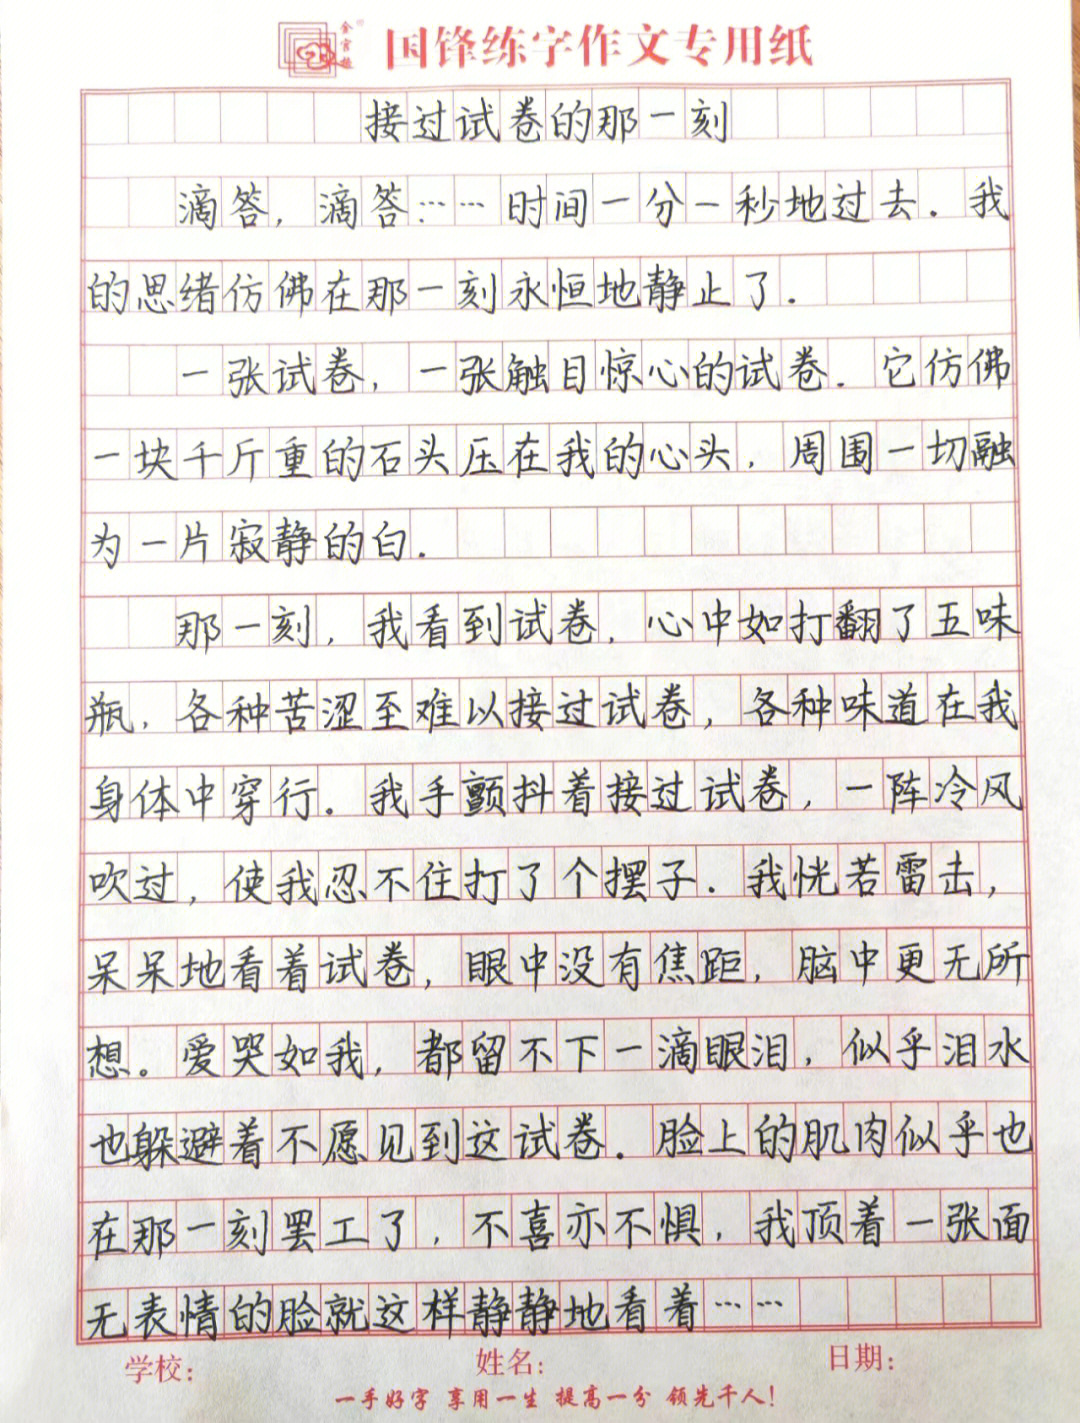 金言越
国锋练字作文专用纸
接过试卷的那一刻
滴答,滴答……时间一分一秒地过去.我
的思绪仿佛在那一刻永恒地静止了.
一张试卷,一张触目惊心的试卷.它仿佛
一块千斤重的石头压在我的心头,周围一切融
为一片寂静的白.
那一刻,我看到试卷,心中如打翻了五味
瓶,各种苦涩至难以接过试卷,各种味道在我
身体中穿行.我手颤抖着接过试卷,一阵冷风
吹过,使我忍不住打了个摆子.我恍若雷击,
呆呆地看着试卷,眼中没有焦距,脑中更无所
想。爱哭如我,都留不下一滴眼泪,似乎泪水
也躲避着不愿见到这试卷.脸上的肌肉似乎也
在那一刻罢工了,不喜亦不惧,我顶着一张面
无表情的脸就这样静静地看着……
学校: 姓名: 日期:
一手好字 享用一生 提高一分 领先千人!